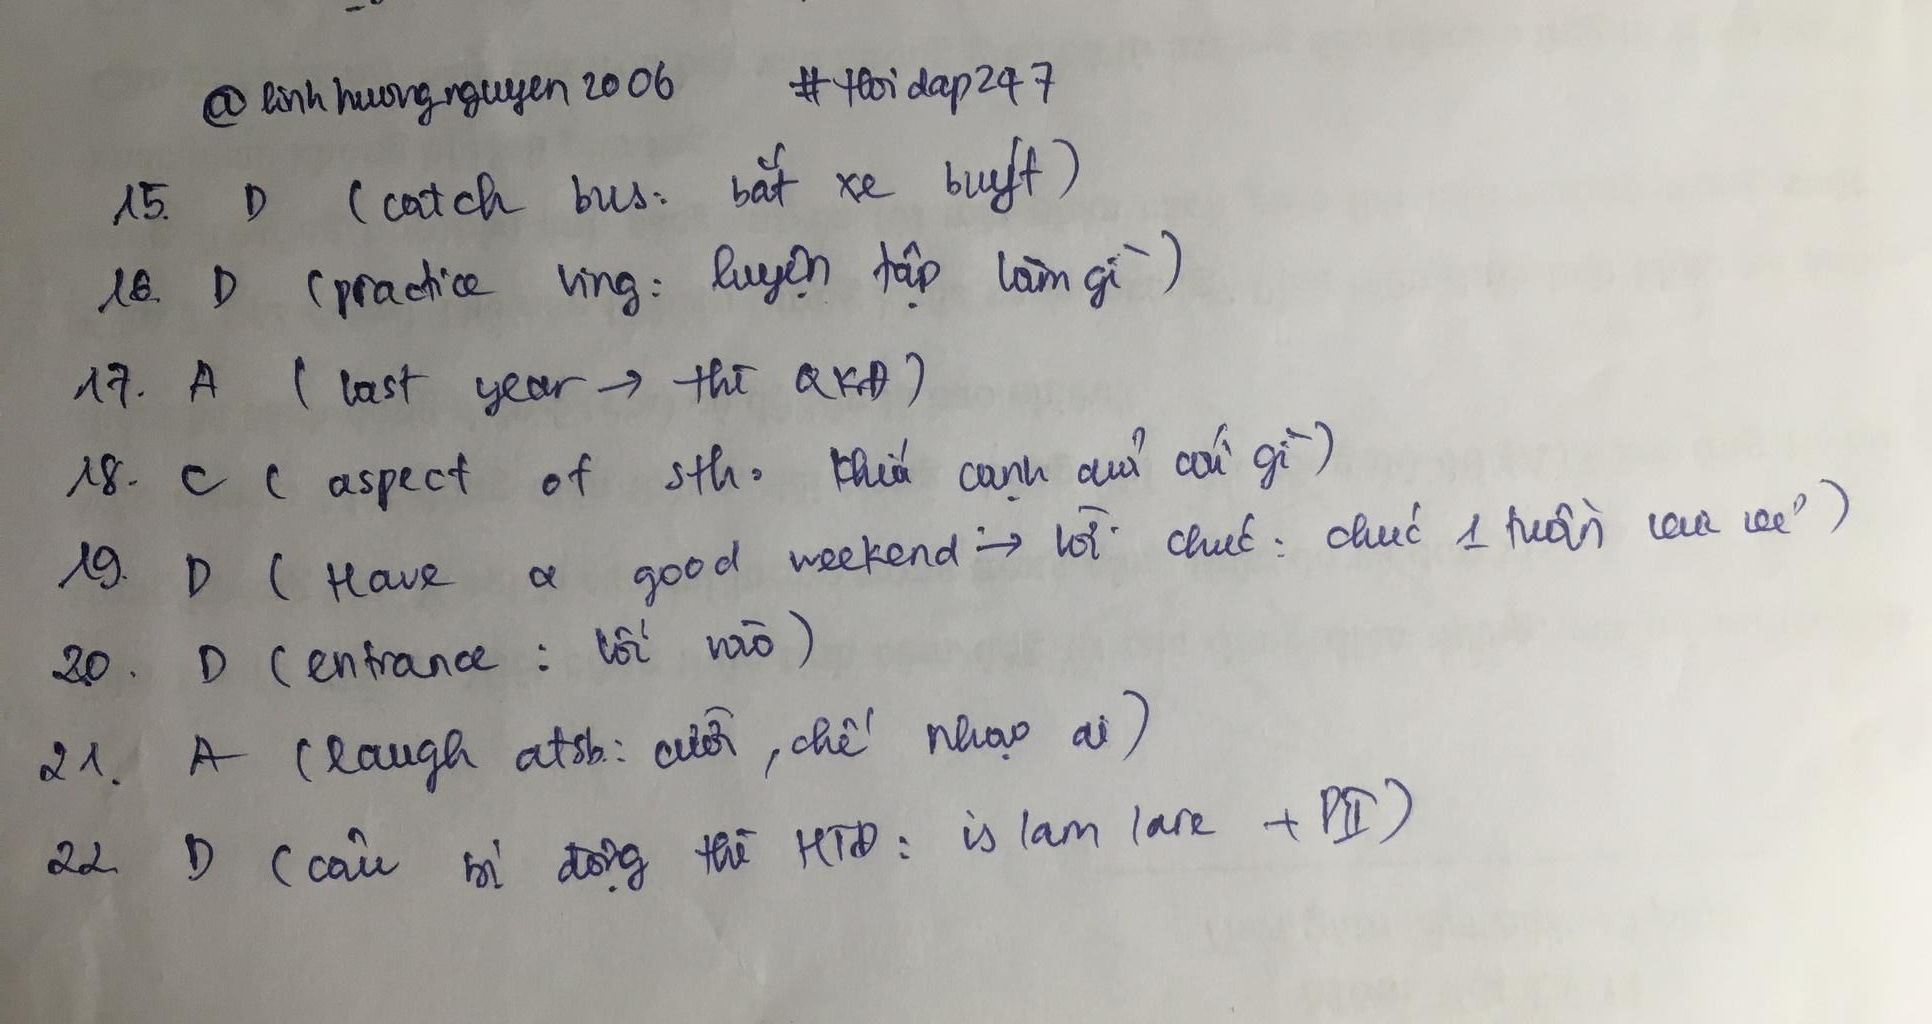 @linhhuongnguyen2006 #Hoidap247
15. D (catch bus: bắt xe buýt)
16. D (practice Ving: luyện tập làm gì)
17. A (last year → thì QKĐ)
18. C (aspect of sth: khía cạnh của cái gì)
19. D (Have a good weekend: → lời chúc: chúc 1 tuần vui vẻ)
20. D (entrance: lối vào)
21. A (laugh at sb: cười, chế nhạo ai)
22. D (câu bị động thì HTĐ: is/am/are + PII)